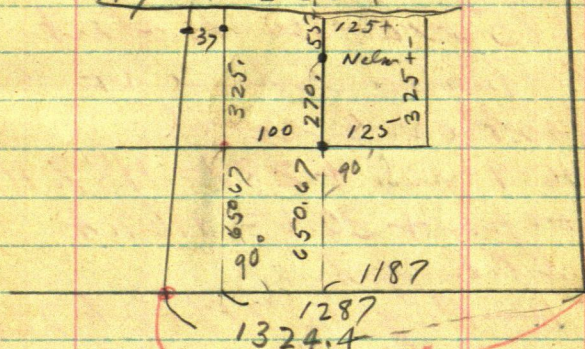 37
125+
55
Nelm+
325.
270.
325-
100
125
90
650.67
650.67
90°
1187
1287
1324.4